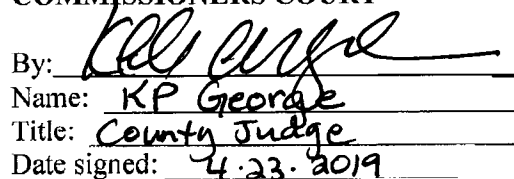 COMMISSIONERS COURT
By:
Name: KP George
Title: County Judge
Date signed: 4.23.2019